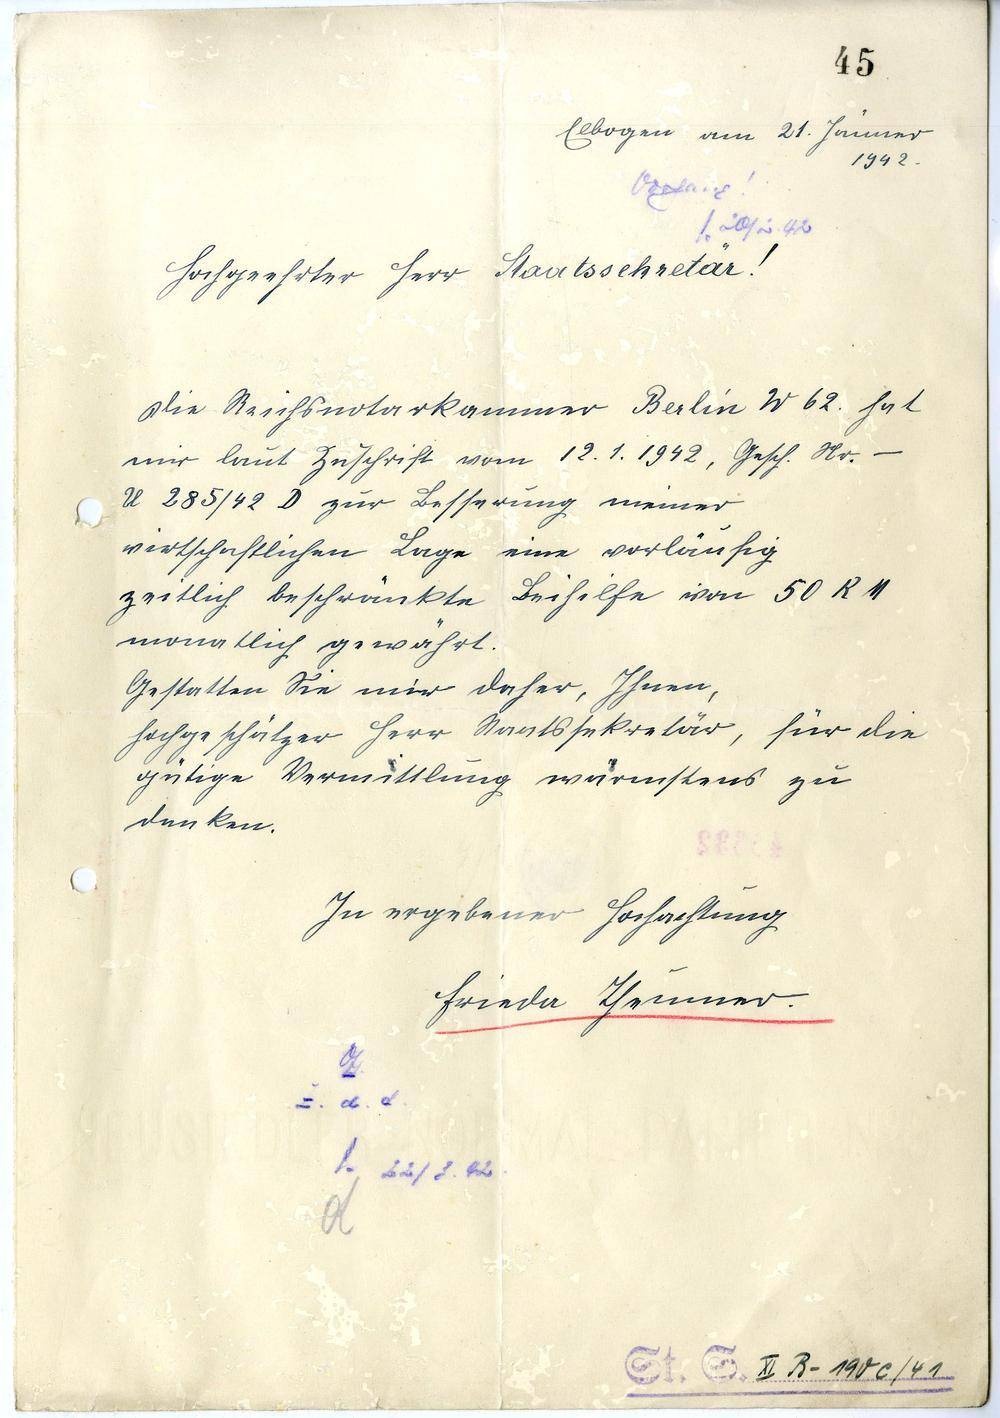 45
Elbogen am 21. Jänner
1942.
Vorgang!
1. 20/2.42
Hochgeehrter Herr Staatssekretär!
Die Reichsnotarkammer Berlin W 62. hat
mir laut Zuschrift vom 12.1.1942, Gesch. Nr. –
U 285/42 D zur Besserung meiner
wirtschaftlichen Lage eine vorläufig
zeitlich beschränkte Beihilfe von 50 R M
monatlich gewährt.
Gestatten Sie mir daher, Ihnen,
hochgeschätzer Herr Staatssekretär, für die
gütige Vermittlung wärmstens zu
danken.
In ergebener Hochachtung
Frieda Theumer.
z. d. d.
1. 22/3.42.
St. S. XI B - 190 c/41